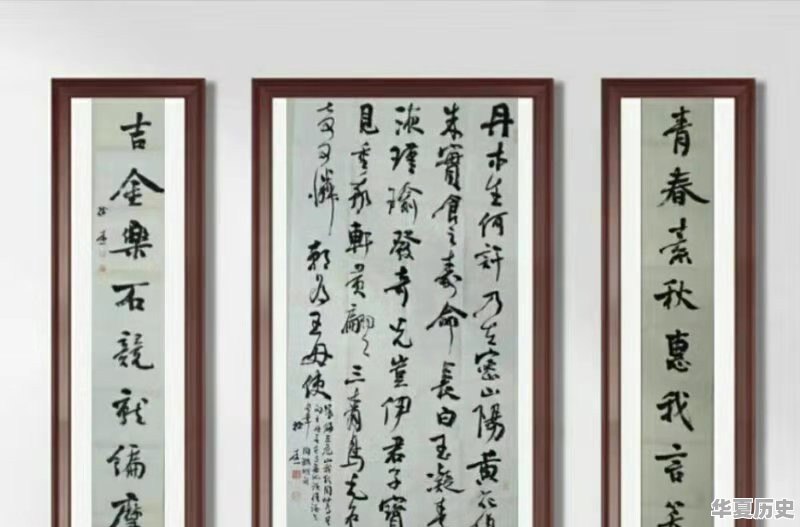 青春素秋惠我言
丹木生何許乃在密山陽黄花復
朱實食之壽命長白玉凝素
液瑾瑜發奇光豈伊君子寶
見重我軒黄翩翩三青鳥毛色
奇可憐 朝為王母使
吉金樂石競就編摩
华夏历史